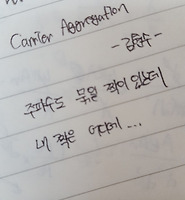 Carrier Aggregation
주파수도 묶일 짝이 있는데
내 짝은 어디에...